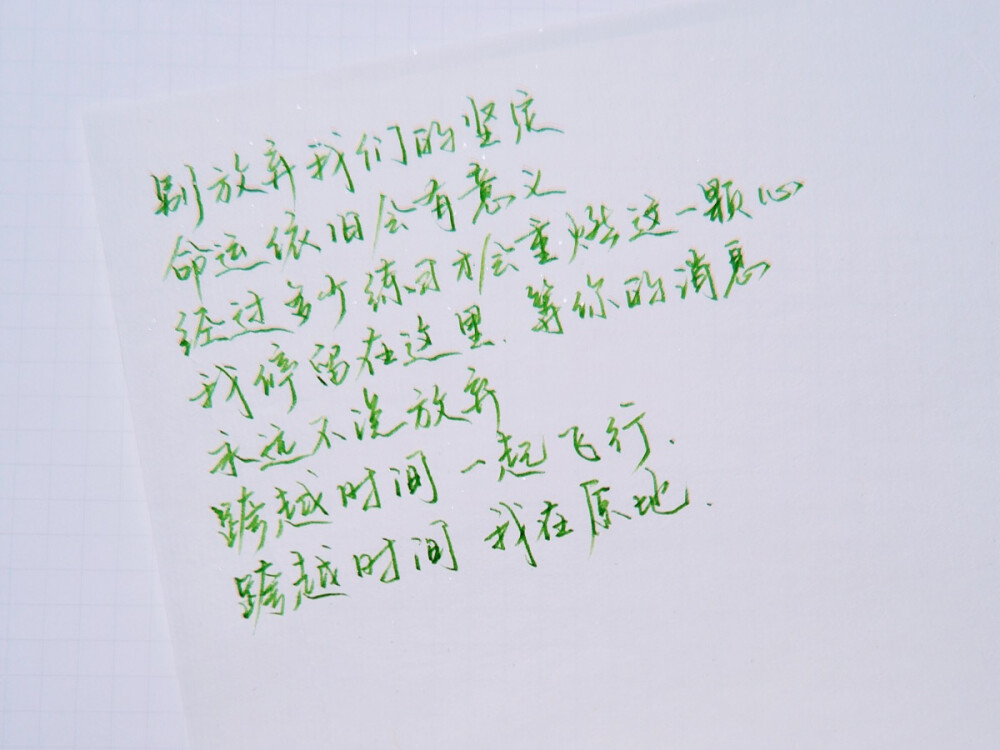 别放弃我们的坚定
命运依旧会有意义
经过多少练习才会重燃这一颗心
我停留在这里.等你的消息
永远不说放弃
跨越时间 一起飞行.
跨越时间 我在原地.